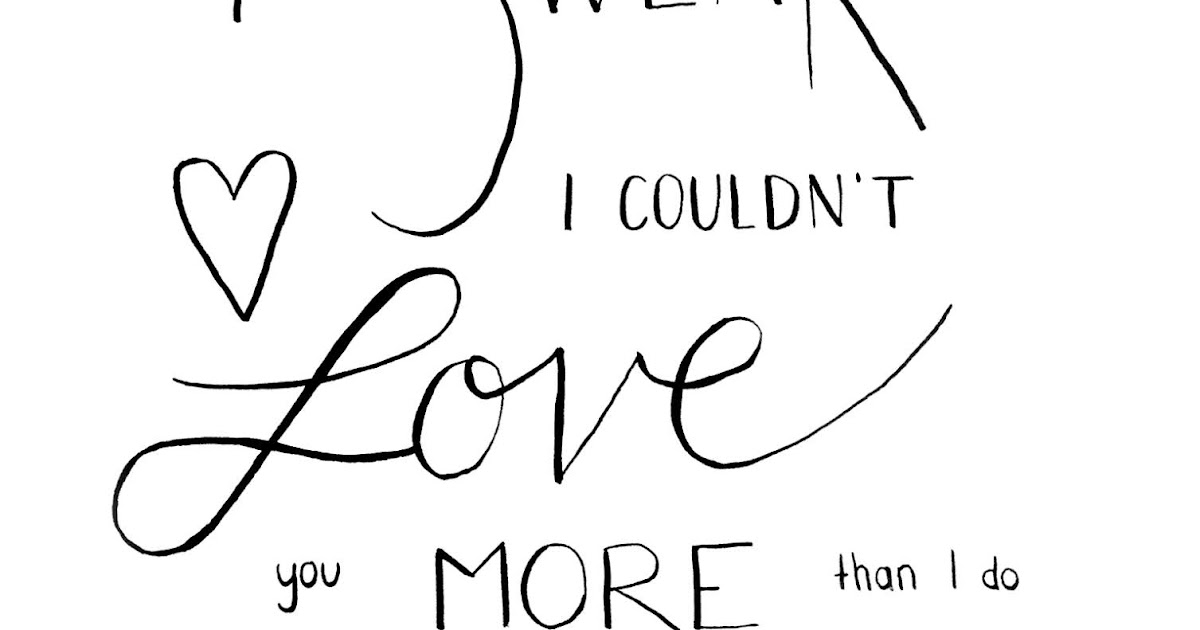 I COULDN'T
Love
you MORE than I do